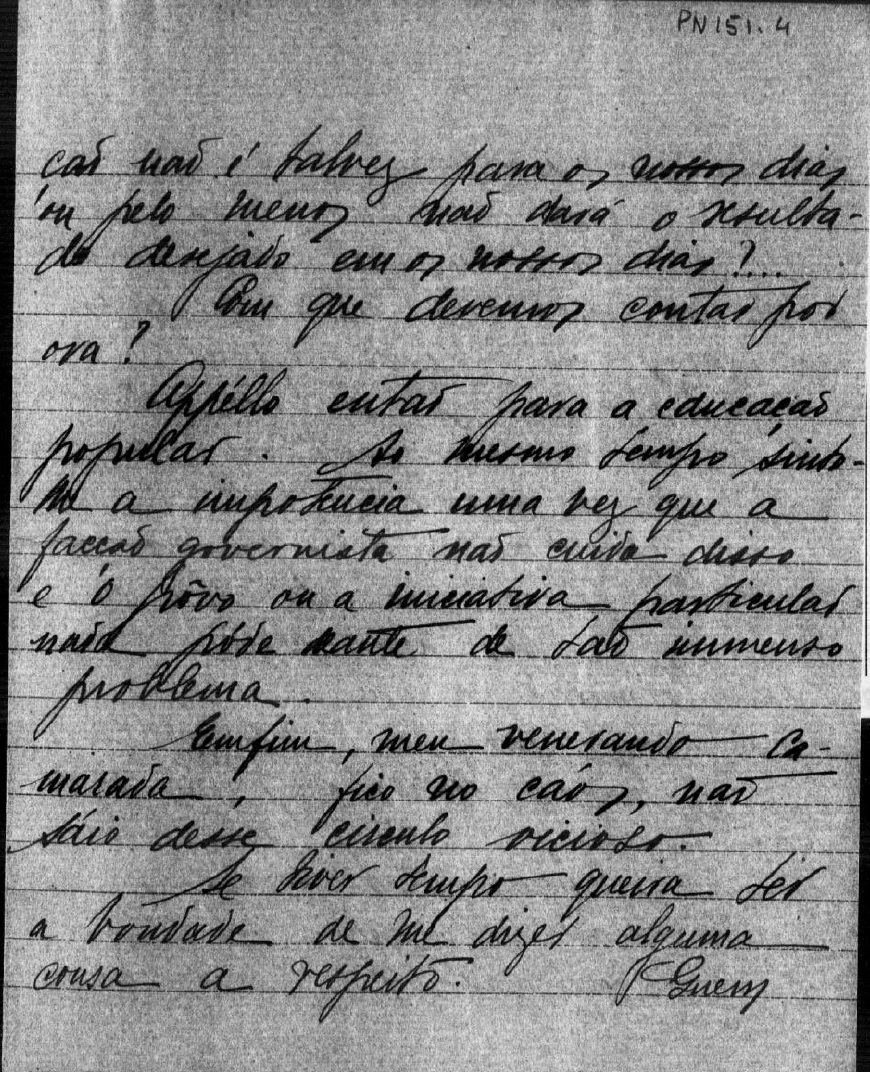 PN 151.4
cão não é talvez para os nossos dias
ou pelo menos não dará o resulta-
do desejado em os nossos dias?...
Com que devemos contar por
ora?
Appéllo então para a educação
popular. Ao mesmo tempo sinto-
me a impotencia uma vez que a
facção governista não cuida disso
e o pôvo ou a iniciativa particular
nada póde ante de tão immenso
problema.
Emfim, meu venerando ca-
marada, fico no cáos, não
sáio desse circulo vicioso.
Se tiver tempo queira ter
a bondade de me dizer alguma
cousa a respeito.